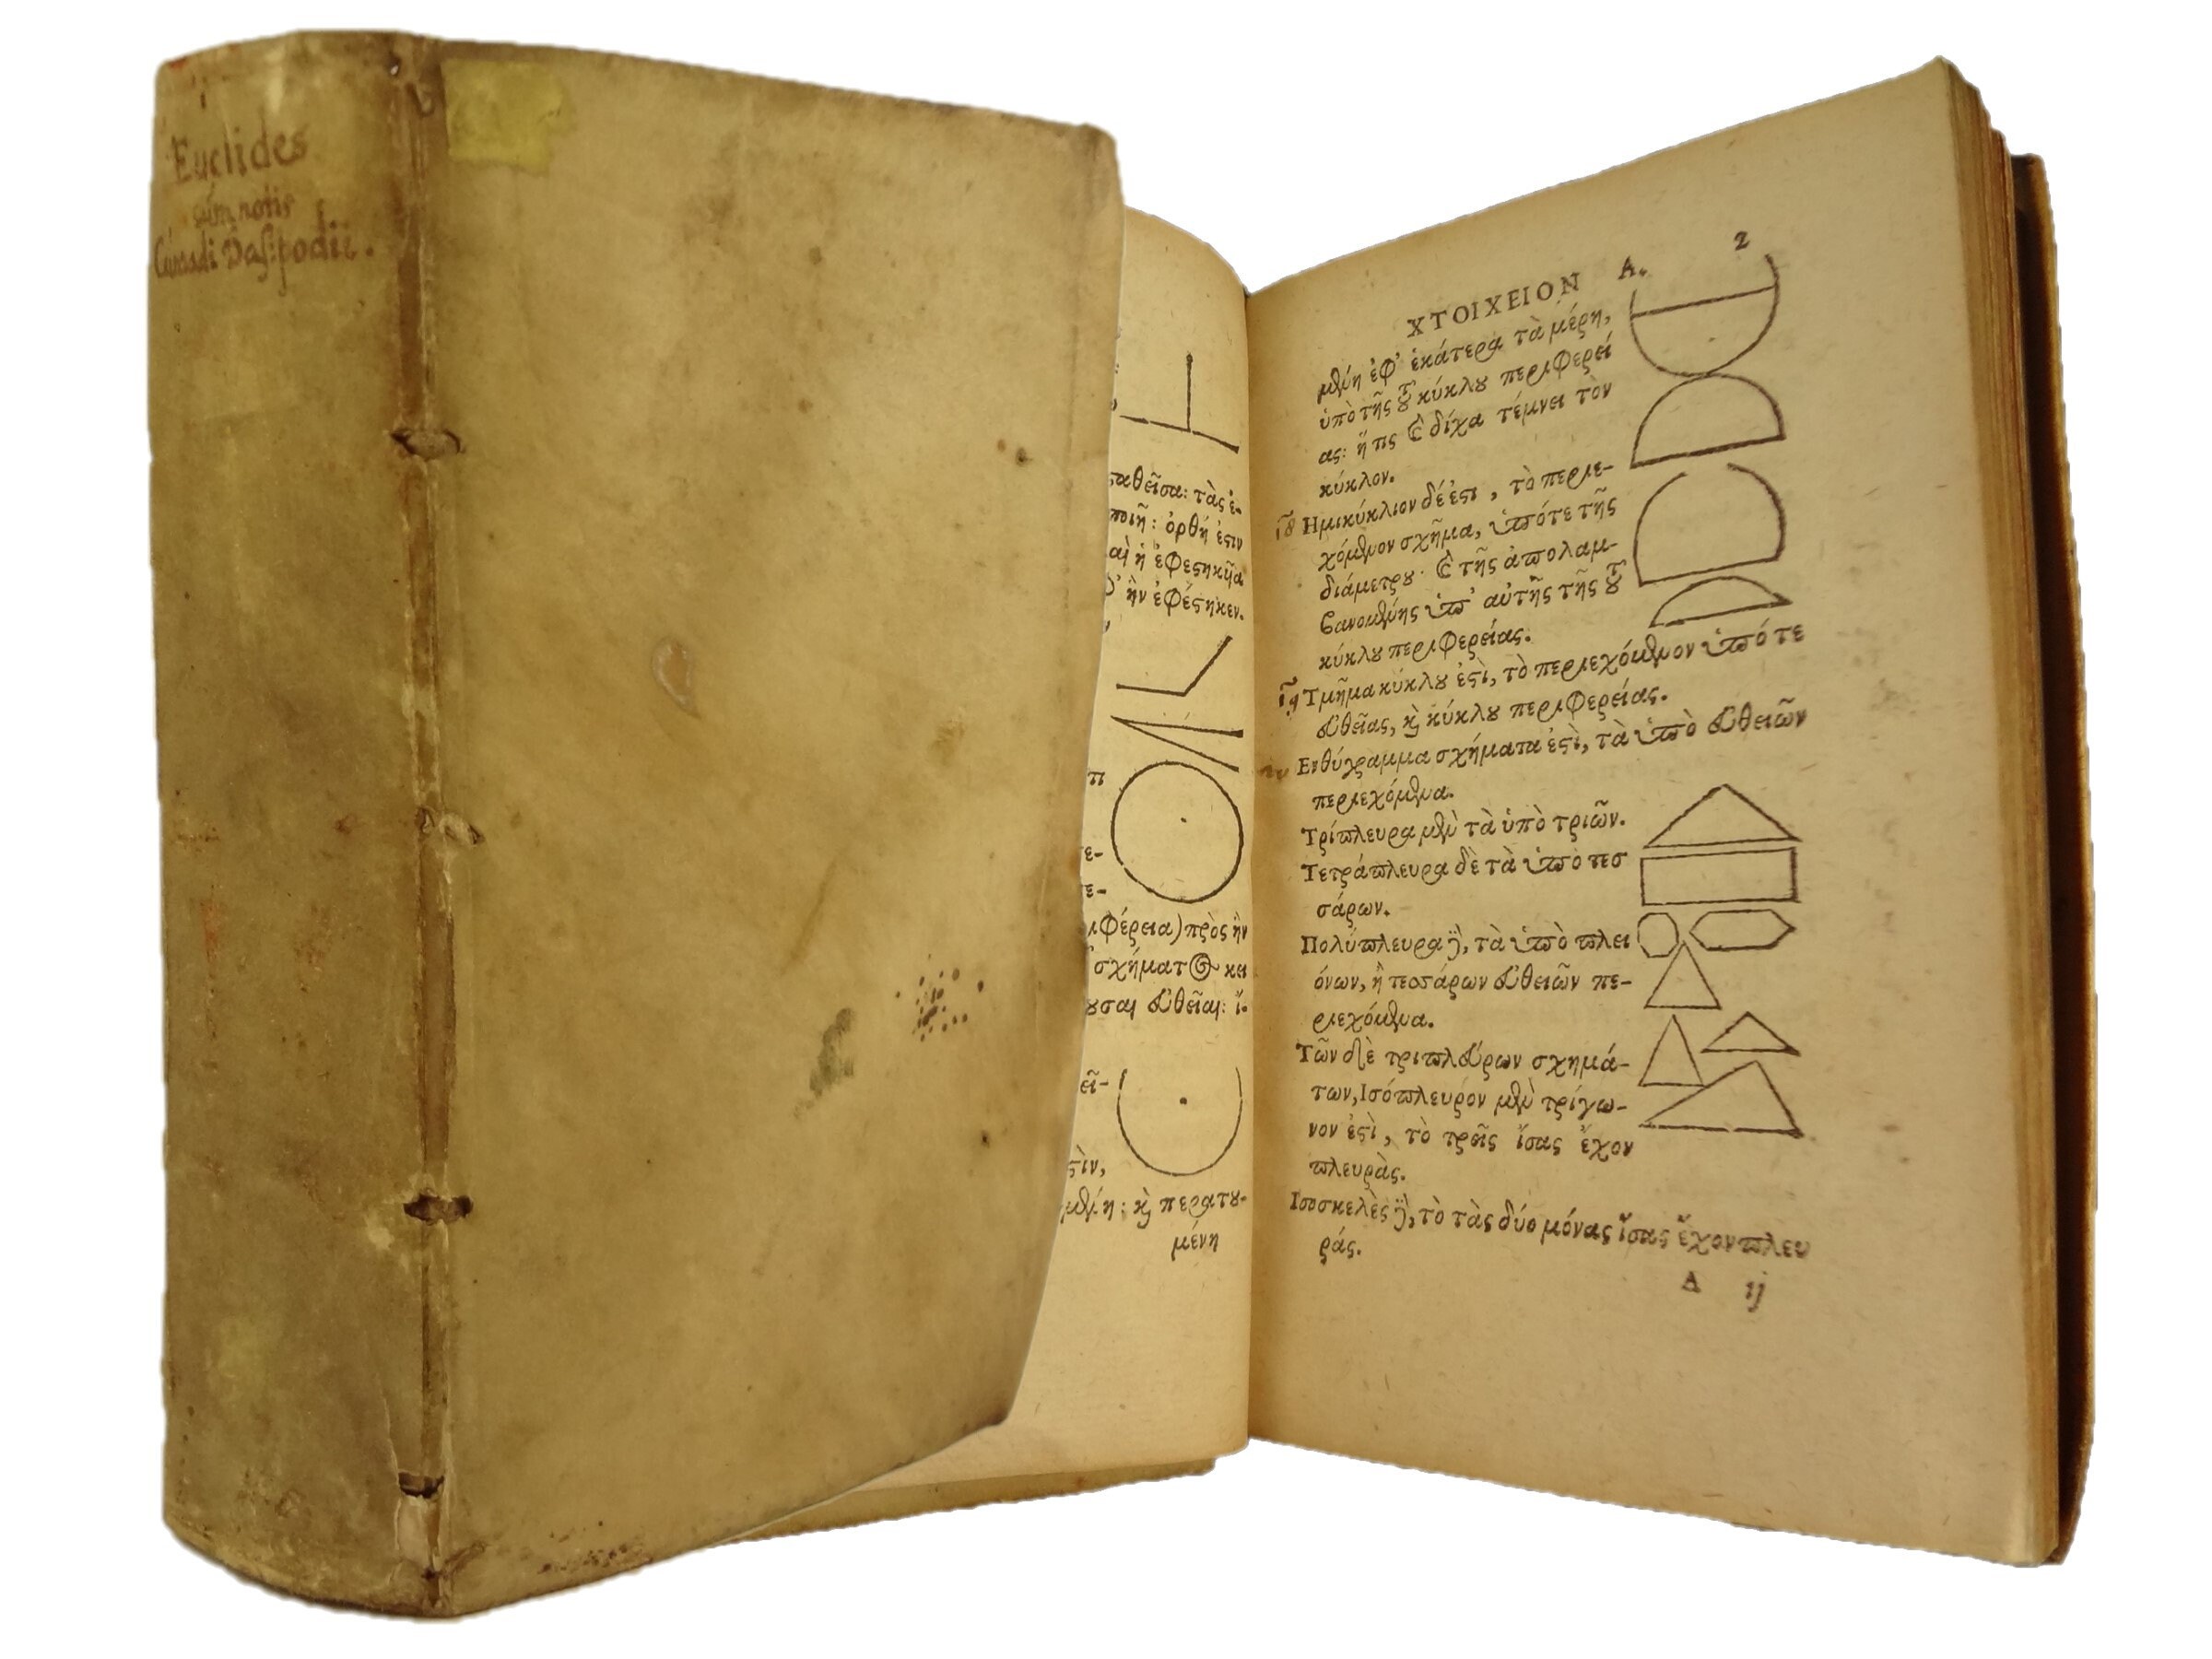 Euclides
cum notis
Cunradi Dasypodii.
ϛαθεῖσα: τὰς ἐ-
ποιῇ: ὀρθή ἐϛιν
ἡ ἐφεϛηκῆα
ἣν ἐφέϛηκεν.
φέρεια) πρὸς ἣν
σχήματος κει
ουσαι εὐθεῖαι: ἴ-
εῖ-
ϛὶν,
μένη: καὶ περατου-
μένη
ΣΤΟΙΧΕΙΟΝ Α. 2
μένη ἐφ' ἑκάτερα τὰ μέρη,
ὑπὸ τῆς τοῦ κύκλου περιφερεί
ας: ἥ τις καὶ δίχα τέμνει τὸν
κύκλον.
ιη Ημικύκλιον δέ ἐϛι, τὸ περιε-
χόμενον σχῆμα, ὑπό τε τῆς
διάμετρου· καὶ τῆς ἀπολαμ-
βανομένης ὑπ' αὐτῆς τῆς τοῦ
κύκλου περιφερείας.
ιθ Τμῆμα κύκλου ἐϛὶ, τὸ περιεχόμενον ὑπό τε
εὐθείας, καὶ κύκλου περιφερείας.
Εὐθύγραμμα σχήματα ἐϛὶ, τὰ ὑπὸ εὐθειῶν
περιεχόμενα.
Τρίπλευρα μὲν τὰ ὑπὸ τριῶν.
Τετράπλευρα δὲ τὰ ὑπὸ τεσ
σάρων.
Πολύπλευρα δὲ, τὰ ὑπὸ πλει
όνων, ἢ τεσσάρων εὐθειῶν πε-
ριεχόμενα.
Τῶν δὲ τριπλεύρων σχημά-
των, Ισόπλευρόν μὲν τρίγω-
νον ἐϛὶ, τὸ τρεῖς ἴσας ἔχον
πλευρὰς.
Ισοσκελὲς δὲ, τὸ τὰς δύο μόνας ἴσας ἔχον πλευ
ράς.
A ij